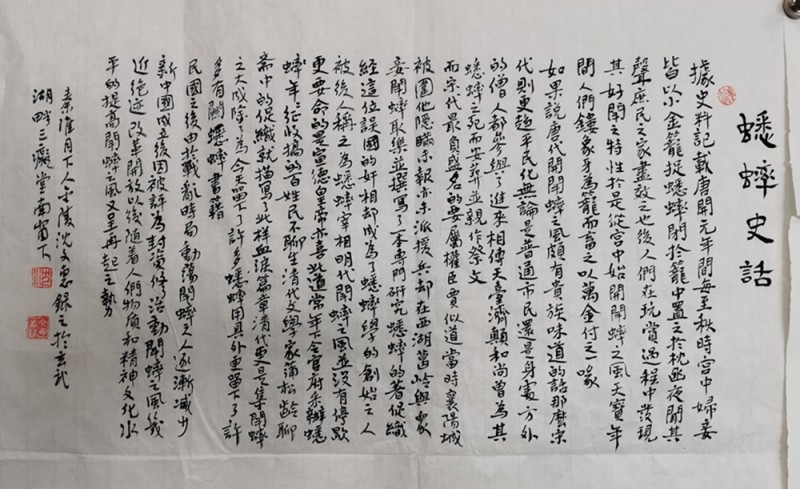 蟋蟀史話
據史料記載唐開元年間每至秋時宮中婦妾
皆以小金籠捉蟋蟀閉於籠中置之於枕函夜聞其
聲庶民之家盡效之也後人們在玩賞過程中發現
其好鬥之特性於是從宮中始開鬥蟀之風天寶年
間人們鏤象牙為籠而畜之以萬金付之喙
如果說唐代開鬥蟀之風頗有貴族味道的話那麼宋
代則更趨平民化無論是普通市民還是身處方外
的僧人都參與了進來相傳天臺濟顛和尚曾為其
蟋蟀之死而安葬並親作祭文
而宋代最負盛名的要屬權臣賈似道當時襄陽城
被圍他隱瞞不報亦不派援兵卻在西湖葛岭與眾
妾鬥蟀取樂並撰寫了一本專門研究蟋蟀的著促織
經這位誤國的奸相卻成為了蟋蟀學的創始之人
被後人稱之為蟋蟀宰相明代鬥蟀之風並沒有停歇
更要命的是宣德皇帝亦喜此道常年令官府采辦蟋
蟀年年征收搞的百姓民不聊生清代文學家蒲松齡聊
齋中的促織就描寫了此样血淚篇章清代更是集鬥蟀
之大成除了為今天留下了許多蟋蟀用具外更留下了許
多有關蟋蟀書籍
民國之後由於戰亂時局動蕩鬥蟀之人逐漸減少
新中國成立後因被評為封資修活動鬥蟀之風幾
近絕迹改革開放以後隨着人們物质和精神文化水
平的提高鬥蟀之風又呈再起之勢
秦淮月下人金陵沈文惠録之於玄武
湖畔三癡堂南窗下